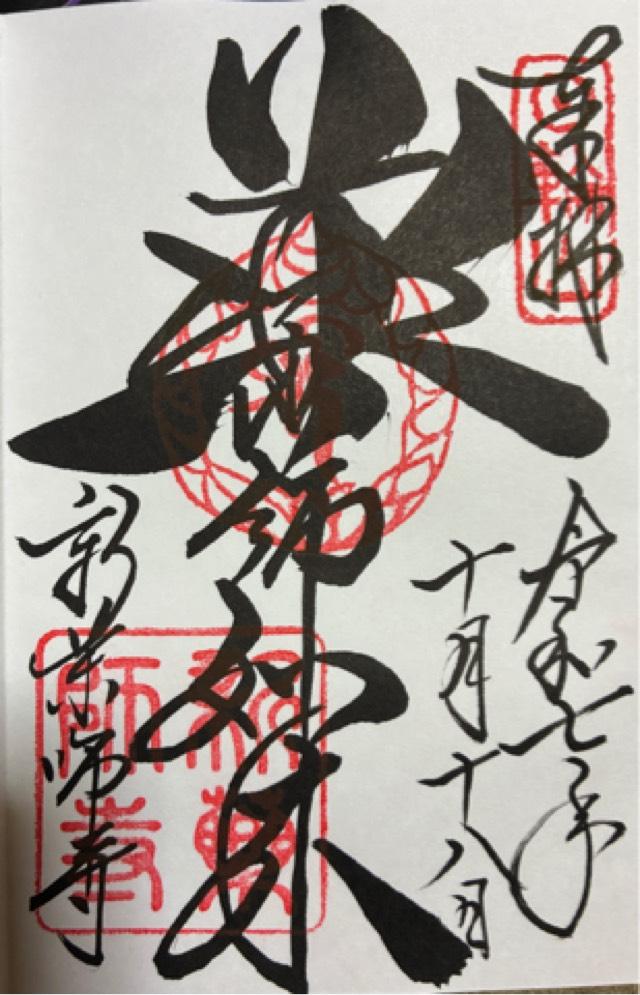 奉拝
令和七年
十月十八日
薬師如来
新薬師寺
新薬
師寺